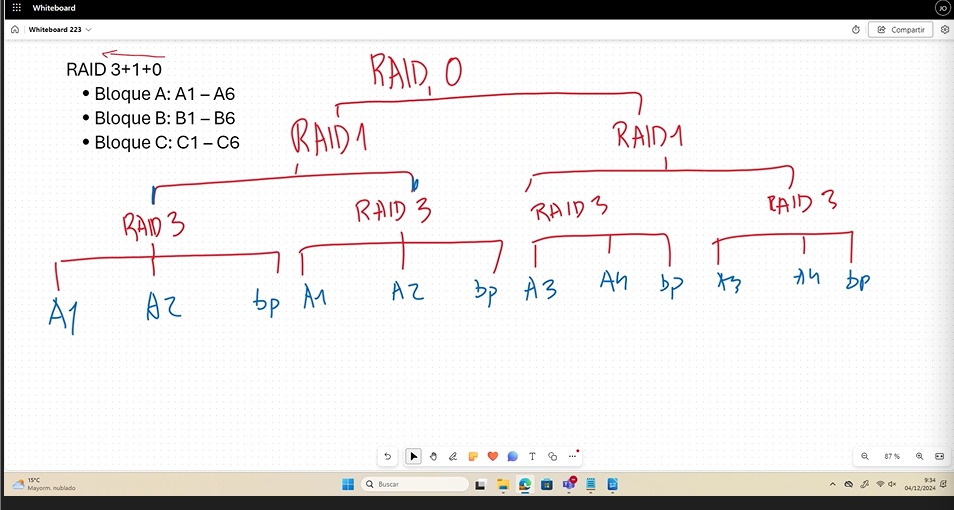 Whiteboard
JO
Whiteboard 223
Compartir
RAID 3+1+0
• Bloque A: A1 – A6
• Bloque B: B1 – B6
• Bloque C: C1 – C6
RAID 0
RAID1 RAID1
RAID 3 RAID 3 RAID 3 RAID 3
A1 A2 bp A1 A2 bp A3 A4 bp A3 A4 bp
T
87 %
15°C
Mayorm. nublado
Buscar
9:34
04/12/2024